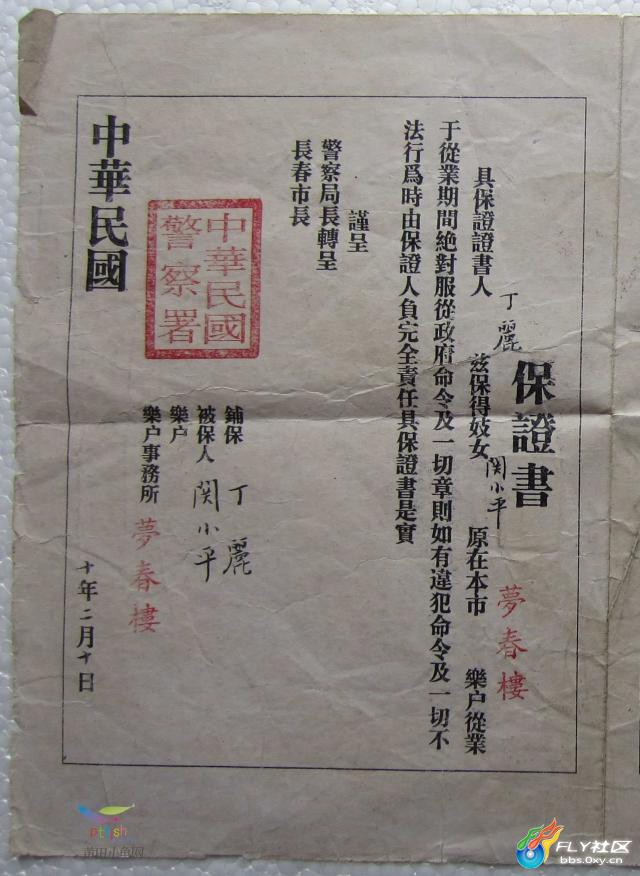 保證書
具保證證書人 丁麗 茲保得妓女 関小平 原在本市 夢春樓 樂户從業
于從業期間絶對服從政府命令及一切章則如有違犯命令及一切不
法行爲時由保證人負完全責任具保證書是實
謹呈
警察局長轉呈
長春市長
鋪保 丁麗
被保人 関小平
樂户
樂户事務所 夢春樓
中華民國
警察署
中華民國 十年二月十日
ptfish
莆田小鱼网
FLY社区
bbs.0xy.cn